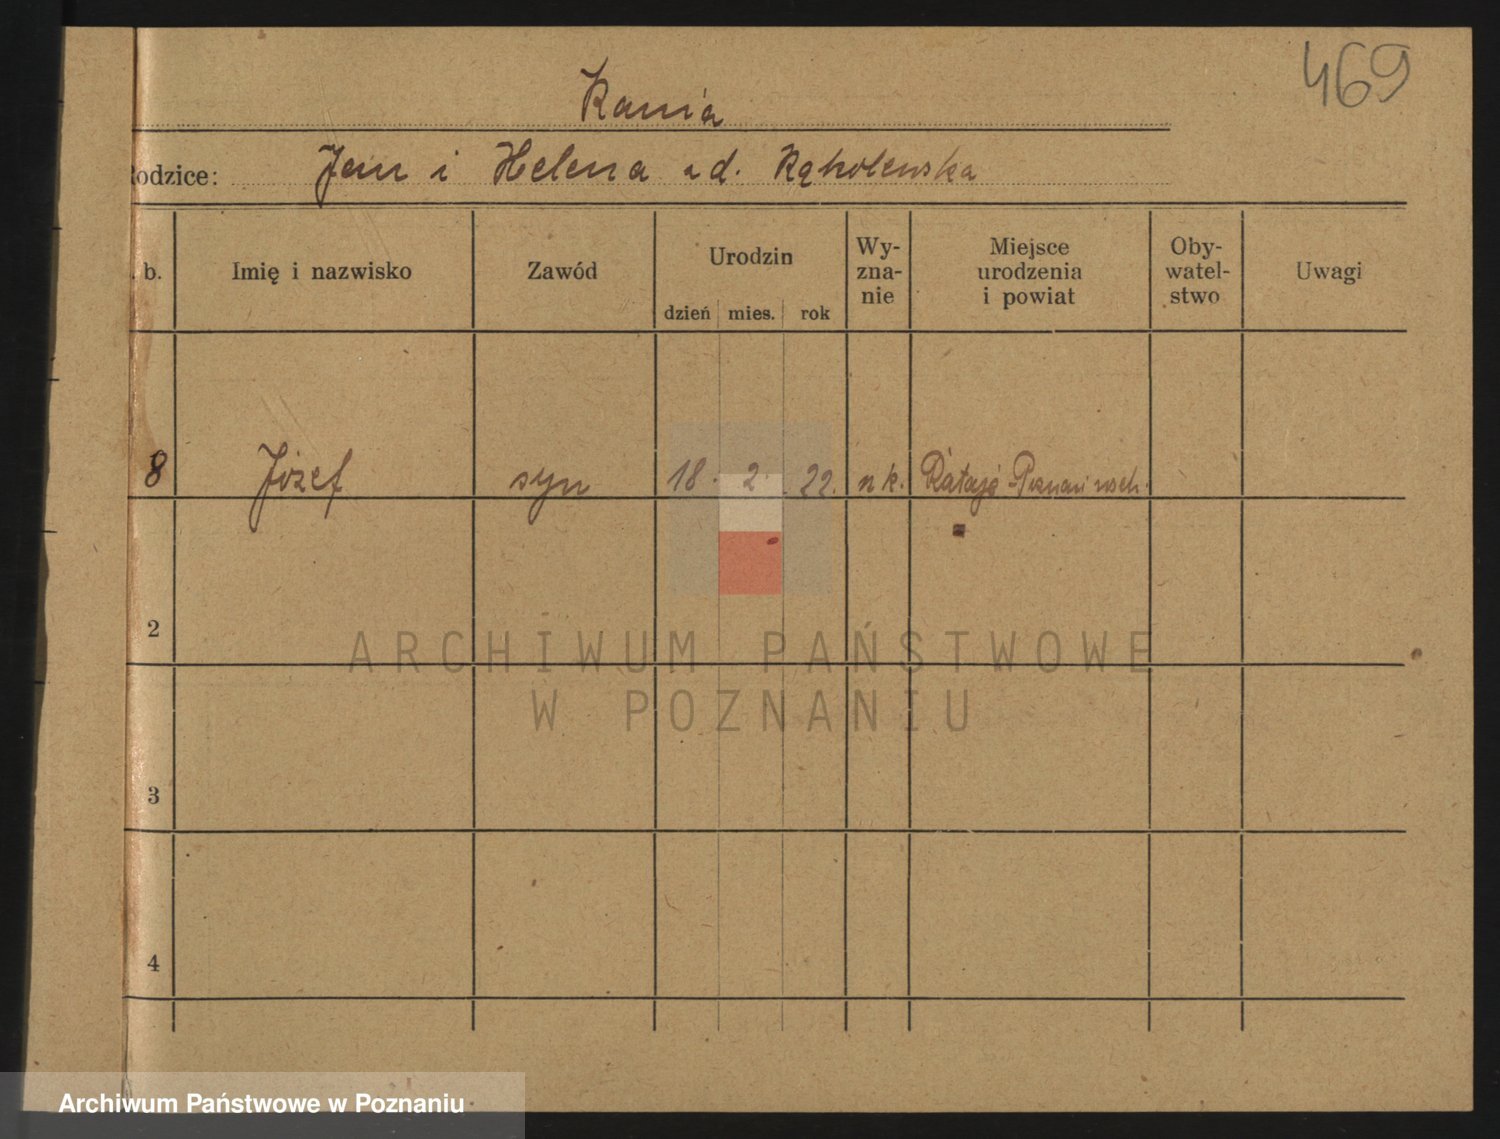 469
Kania
Rodzice: Jan i Helena zd. Kąkolewska
b. Imię i nazwisko Zawód Urodzin dzień mies. rok Wy-zna-nie Miejsce urodzenia i powiat Oby-watel-stwo Uwagi
8 Józef syn 18. 2. 22. rz k. Rataje Poznań wsch.
2
ARCHIWUM PAŃSTWOWE
W POZNANIU
3
4
Archiwum Państwowe w Poznaniu